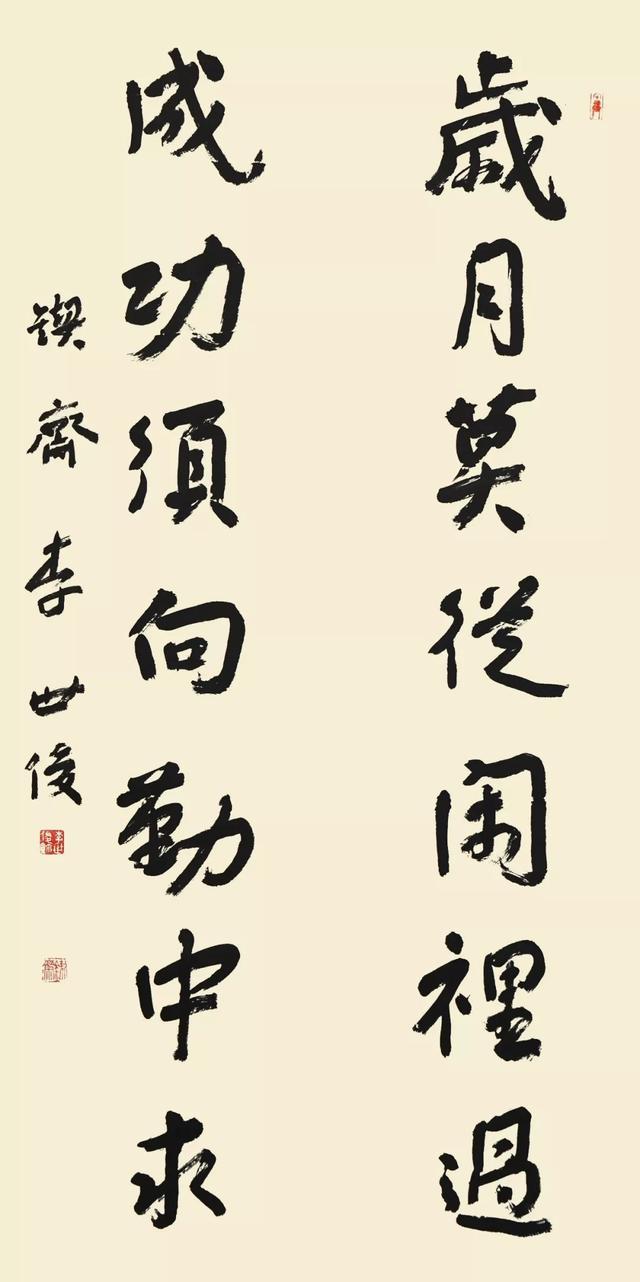 歲月莫從閑裡過
成功須向勤中求
鍥齋李世俊